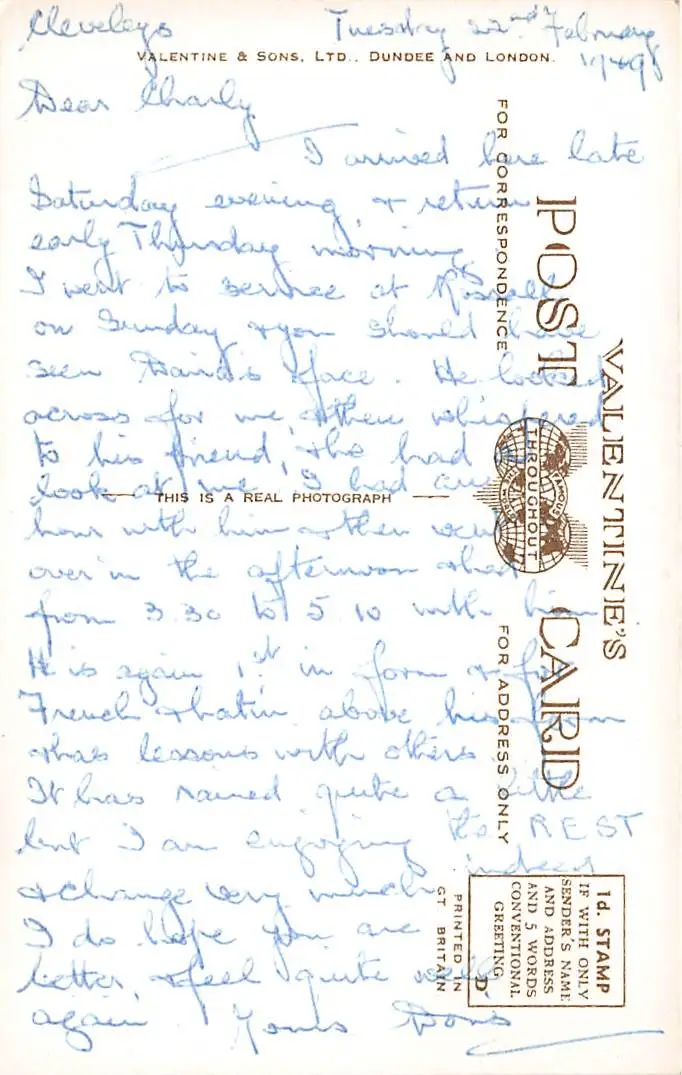 Cleveleys Tuesday 22nd February
1949
VALENTINE & SONS, LTD., DUNDEE AND LONDON.
Dear Charly
I arrived here late
Saturday evening, & return
early Thursday morning
I went to service at Rossall
on Sunday & you should have
seen David's face. He looked
across for me, & then whispered
to his friend, & he had a
look at me. I had
THIS IS A REAL PHOTOGRAPH
hour with him & then went
over in the afternoon & had
from 3.30 to 5.10 with him
He is again 1st in form & for
French & Latin above his form
& has lessons with others.
It has rained quite a little
but I am enjoying the REST
& change very much indeed
I do hope you are
better, & feel quite well
again. Yours Doris
FOR CORRESPONDENCE
FOR ADDRESS ONLY
POST CARD
VALENTINE'S
FAMOUS
THROUGHOUT
THE WORLD
PRINTED IN
GT. BRITAIN
1d. STAMP
IF WITH ONLY
SENDER'S NAME
AND ADDRESS
AND 5 WORDS
CONVENTIONAL
GREETING.
D